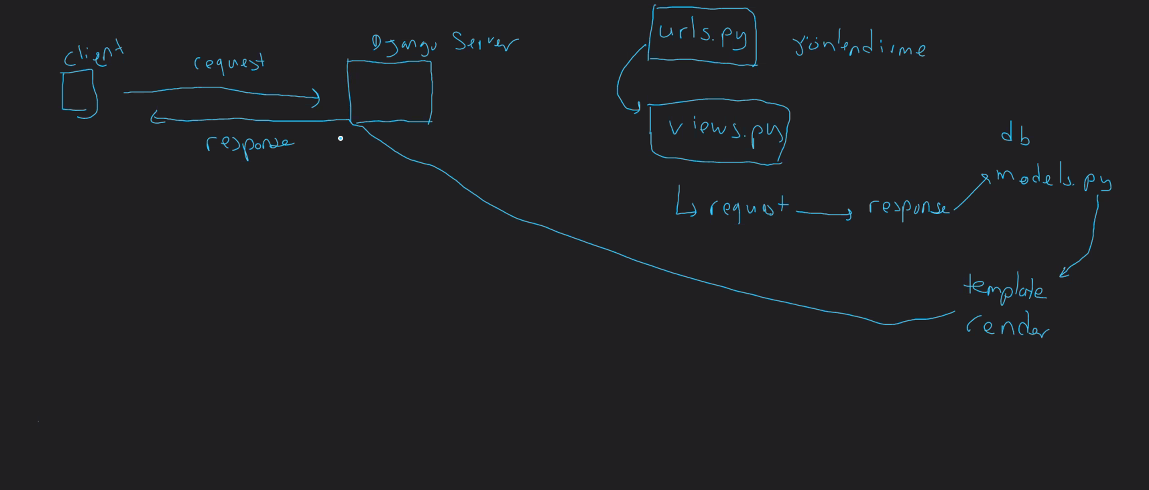 client
request
response
Django Server
urls.py
yönlendirme
views.py
request
response
db
models.py
template
render